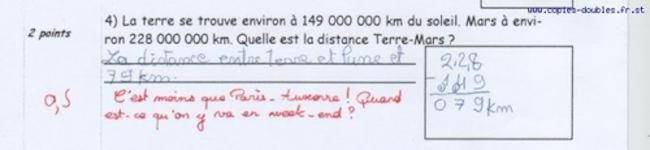 www.copies-doubles.fr.st
2 points
4) La terre se trouve environ à 149 000 000 km du soleil. Mars à envi-
ron 228 000 000 km. Quelle est la distance Terre-Mars ?
La distance entre Terre et Lune et
79 km.
0,5
C'est moins que Paris-Auxerre ! Quand
est-ce qu'on y va en week-end ?
228
- 149
079 km